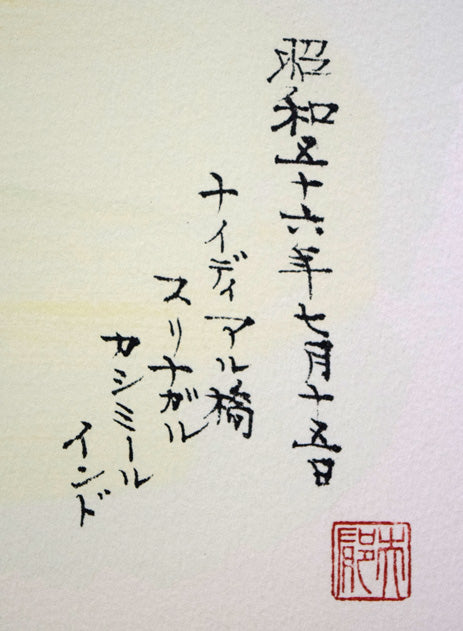 昭和五十六年七月十五日
ナイディアル橋
スリナガル
カシミール
インド